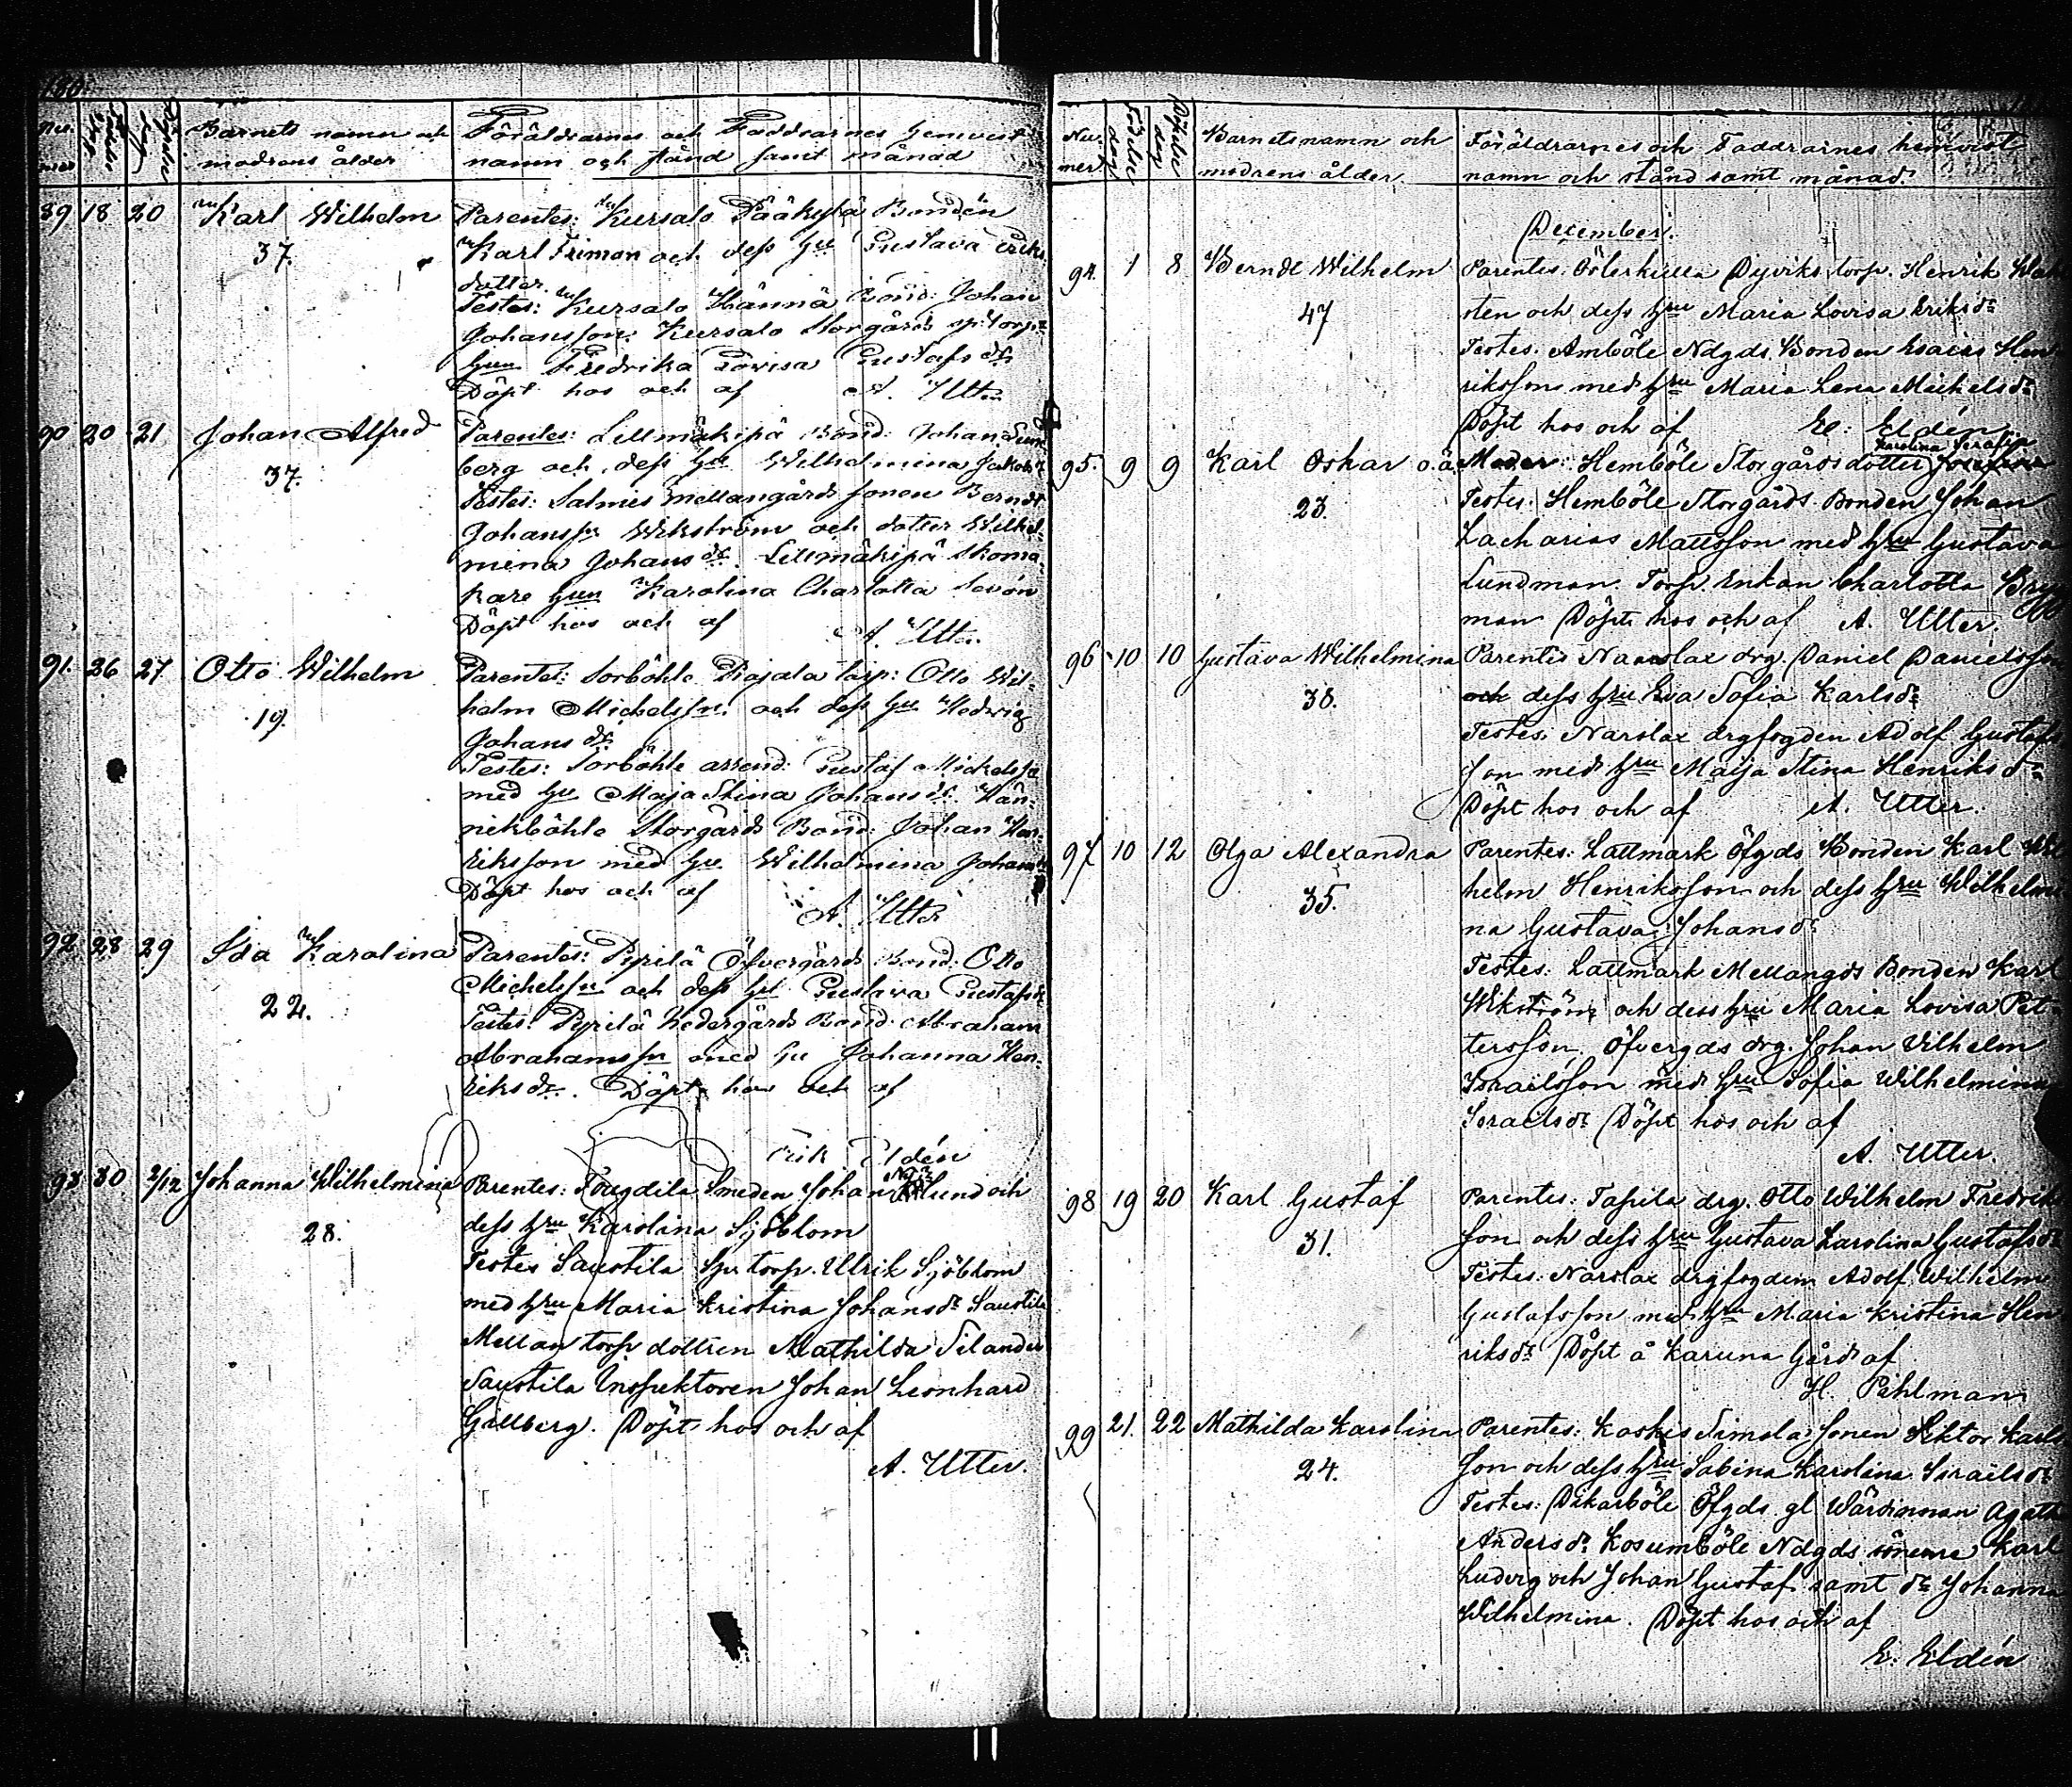 180.
Nu-
mer
Födelse
dag
Döpelse
dag
Barnets namn och
modrens ålder
Föräldrarnes och Faddrarnes hemvist
namn och stånd samt månad
89 18 20 Karl Wilhelm
37.
Parentes: Kursalo Pääkylä Bonden
Karl Friman och dess hu Gustava Eriks
dotter.
Testes: Kursalo Hännä Bond: Johan
Johansson. Kursalo Storgårds sp: torp:
hun Fredrika Lovisa Gustafs dr
Döpt hos och af A. Utter
90 20 21 Johan Alfred
37.
Parentes: Lillmäkipä Bond: Johan Lund
berg och dess hu Wilhelmina Jakobs dr
Testes: Salmis mellangårds sonen Berndt
Johansson Wikström och dotter Wilhel-
mina Johans dr. Lillmäkipä skoma-
kare hun Karolina Charlotta Sevón
Döpt hos och af A. Utter
91. 26 27 Otto Wilhelm
19.
Parentes: Sorböhle Piajala torp: Otto Wil-
helm Michelsson och dess hu Hedvig
Johans dr.
Testes: Sorböhle arrend: Gustaf Mickelsson
med hu Maja Stina Johans dr. Hän-
nickböhle Storgårds Bond: Johan Hen-
riksson med hu Wilhelmina Johans
Döpt hos och af
A. Utter
92 28 29 Ida Karolina
22.
Parentes: Pyrilä Öfvergårds Bond: Otto
Michelsson och dess hu Gustava Gustafs dr
Testes: Pyrilä Nedergårds Bond: Abraham
Abrahamsson med hu Johanna Hen-
riks dr. Döpt hos och af
Erik Eldén
93 30 2/12 Johanna Wilhelmina
28.
Parentes: Fougdila Smeden Johan lund och
dess hru Karolina Sjöblom
Testes Saustila Sp. torp. Ulrik Sjöblom
med hru Maria Kristina Johansdr Saustila
Mellan torp dottren Mathilda Silander
Saustila Inspektoren Johan Leonhard
Gullberg. Döpt hos och af
A. Utter.
Nu-
mer
Födelse
dag
Döpelse
dag
Barnets namn och
modrens ålder.
Föräldrarnes och Faddrarnes hemvist
namn och stånd samt månad.
December.
94. 1 8 Berndt Wilhelm
47
Parentes: Österkulla Dyviks torp. Henrik Wah
sten och dess hru Maria Lovisa Eriksdr
Testes: Amböle Ndgds Bonden Esaias Hen
riksson med hru Maria Lena Mickelsdr
Döpt hos och af E. Eldén
95. 9 9 Karl Oskar o.ä.
23.
Karolina Serafia
Moder: Hemböle Storgårds dotter Josefina
Testes: Hemböle Storgårds Bonden Johan
Zacharias Mattsson med hru Gustava
Lundman Torp. Enkan Charlotta Brygg
man Döpt hos och af A. Utter.
96 10 10 Gustava Wilhelmina
38.
Parentes Narslax drg. Daniel Danielsson
och dess hru Eva Sofia Karlsdr
Testes: Narslax drgfogden Adolf Gustafs
son med hru Maija Stina Henriksdr
Döpt hos och af A. Utter.
97 10 12 Olga Alexandra
35.
Parentes: Lattmark Öfgds Bonden Karl Wil
helm Henriksson och dess hru Wilhelmi
na Gustava Johansdr
Testes: Lattmark Mellangds Bonden Karl
Wikström och dess hru Maria Lovisa Pet
tersson, Öfvergds drg. Johan Vilhelm
Israelsson med hru Sofia Wilhelmina
Israelsdr Döpt hos och af
A. Utter.
98 19 20 Karl Gustaf
31.
Parentes: Tapila drg. Otto Wilhelm Fredriks
son och dess hru Gustava Karolina Gustafsdr
Testes: Narslax drgfogden Adolf Wilhelm
Gustafsson med hru Maria Kristina Hen
riksdr Döpt å Karuna Gård af
H. Pihlman
99 21. 22 Mathilda Karolina
24.
Parentes: Koskis Simola Sonen Viktor Karls
son och dess hru Sabina Karolina Israelsdr
Testes: Dikarböle Öfgds gl Wärdinnan Agatha
Andersdr Kosumböle Ndgds sönerne Karl
Ludvig och Johan Gustaf samt dr Johanna
Wilhelmina. Döpt hos och af
E. Eldén